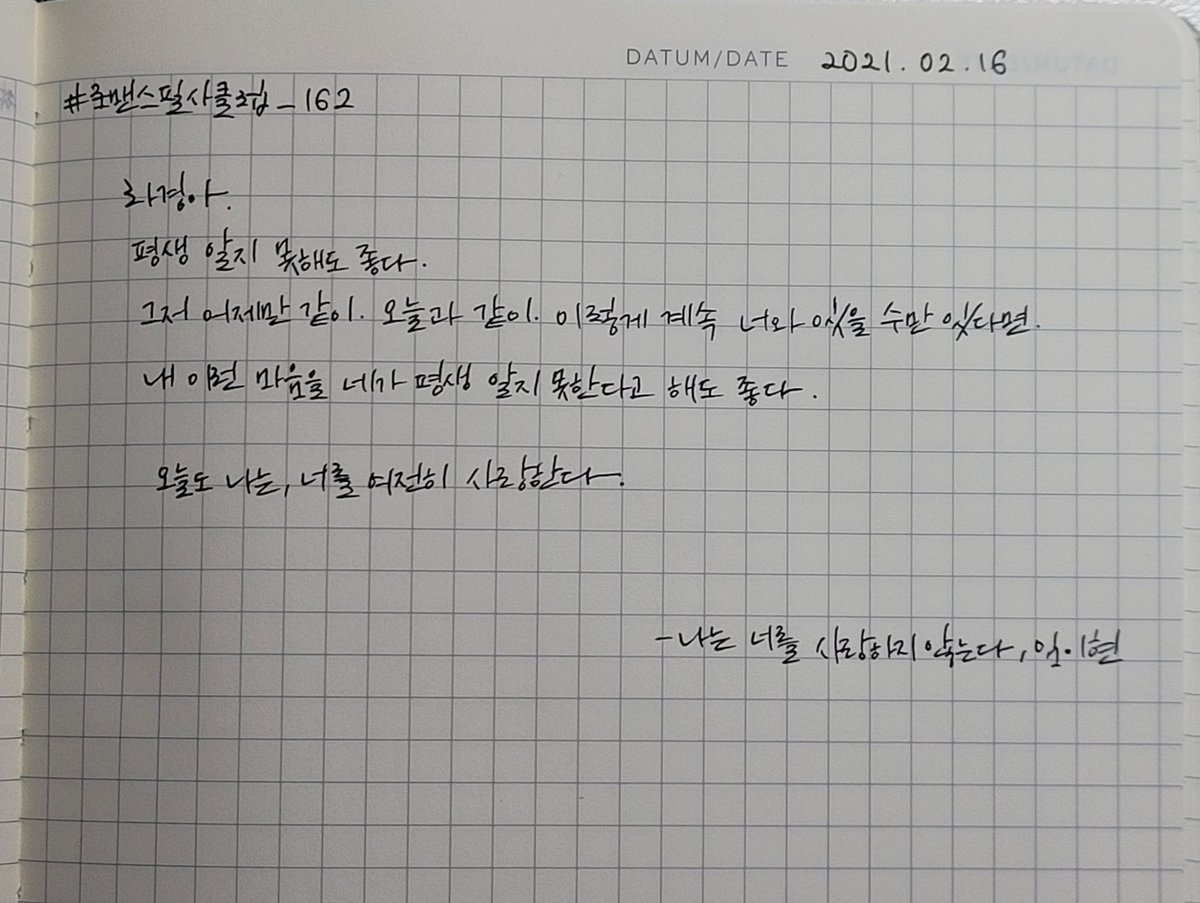 DATUM/DATE 2021.02.16
#로맨스필사클럽_162
화경아.
평생 알지 못해도 좋다.
그저 어제만 같이. 오늘과 같이. 이렇게 계속 너와 있을 수만 있다면.
내 이런 마음을 네가 평생 알지 못한다고 해도 좋다.
오늘도 나는, 너를 여전히 사랑한다.
-나는 너를 사랑하지 않는다, 임이현